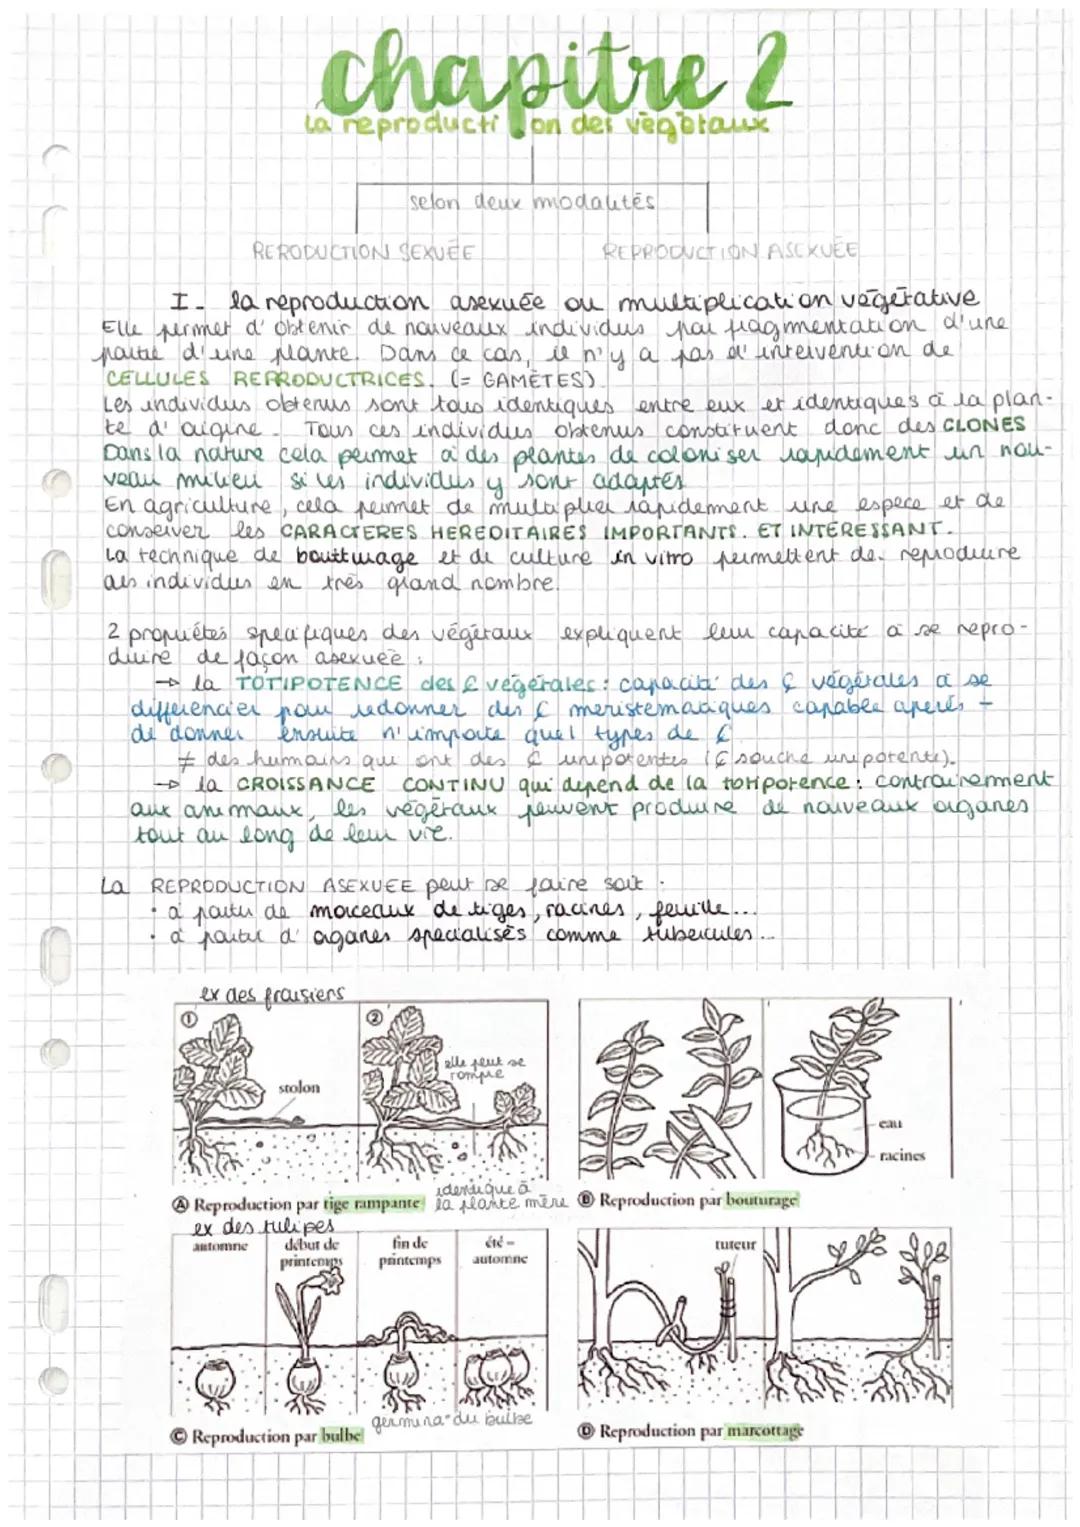 chapitre 2
la reproduction des végétaux
selon deux modalités
RERODUCTION SEXUÉE
REPRODUCTION ASEXUÉE
I- la reproduction asexuée ou multiplication végétative
Elle permet d'obtenir de nouveaux individus par fragmentation d'une
partie d'une plante. Dans ce cas, il n'y a pas d'intervention de
CELLULES REPRODUCTRICES. (= GAMÈTES).
Les individus obtenus sont tous identiques entre eux et identiques à la plan-
te d'origine. Tous ces individus obtenus constituent donc des CLONES
Dans la nature cela permet à des plantes de coloniser rapidement un nou-
veau milieu si les individus y sont adaptés
En agriculture, cela permet de multiplier rapidement une espece et de
conserver les CARACTERES HEREDITAIRES IMPORTANTS. ET INTERESSANT.
La technique de bouturage et de culture in vitro permettent de reproduire
des individus en très grand nombre.
2 propriétés spécifiques des végétaux expliquent leur capacité à se repro-
duire de façon asexuée :
→ la TOTIPOTENCE des C végétales : capacité des C végétales à se
différencier pour redonner des C méristématiques capable après
de donner ensuite n'importe quel types de C
≠ des humains qui ont des C unipotentes (C souche unipotente).
→ la CROISSANCE CONTINU qui dépend de la totipotence : contrairement
aux animaux, les végétaux peuvent produire de nouveaux organes
tout au long de leur vie.
La REPRODUCTION ASEXUEE peut se faire soit :
• à partir de morceaux de tiges, racines, feuille...
• à partir d'organes specialisés comme tubercules...
ex des fraisiers
① ②
elle peut se
rompre
stolon
eau
racines
identique à
la plante mère
Ⓐ Reproduction par tige rampante
Ⓑ Reproduction par bouturage
ex des tulipes
automne
début de
printemps
fin de
printemps
été -
automne
tuteur
germina° du bulbe
Ⓒ Reproduction par bulbe
Ⓓ Reproduction par marcottage